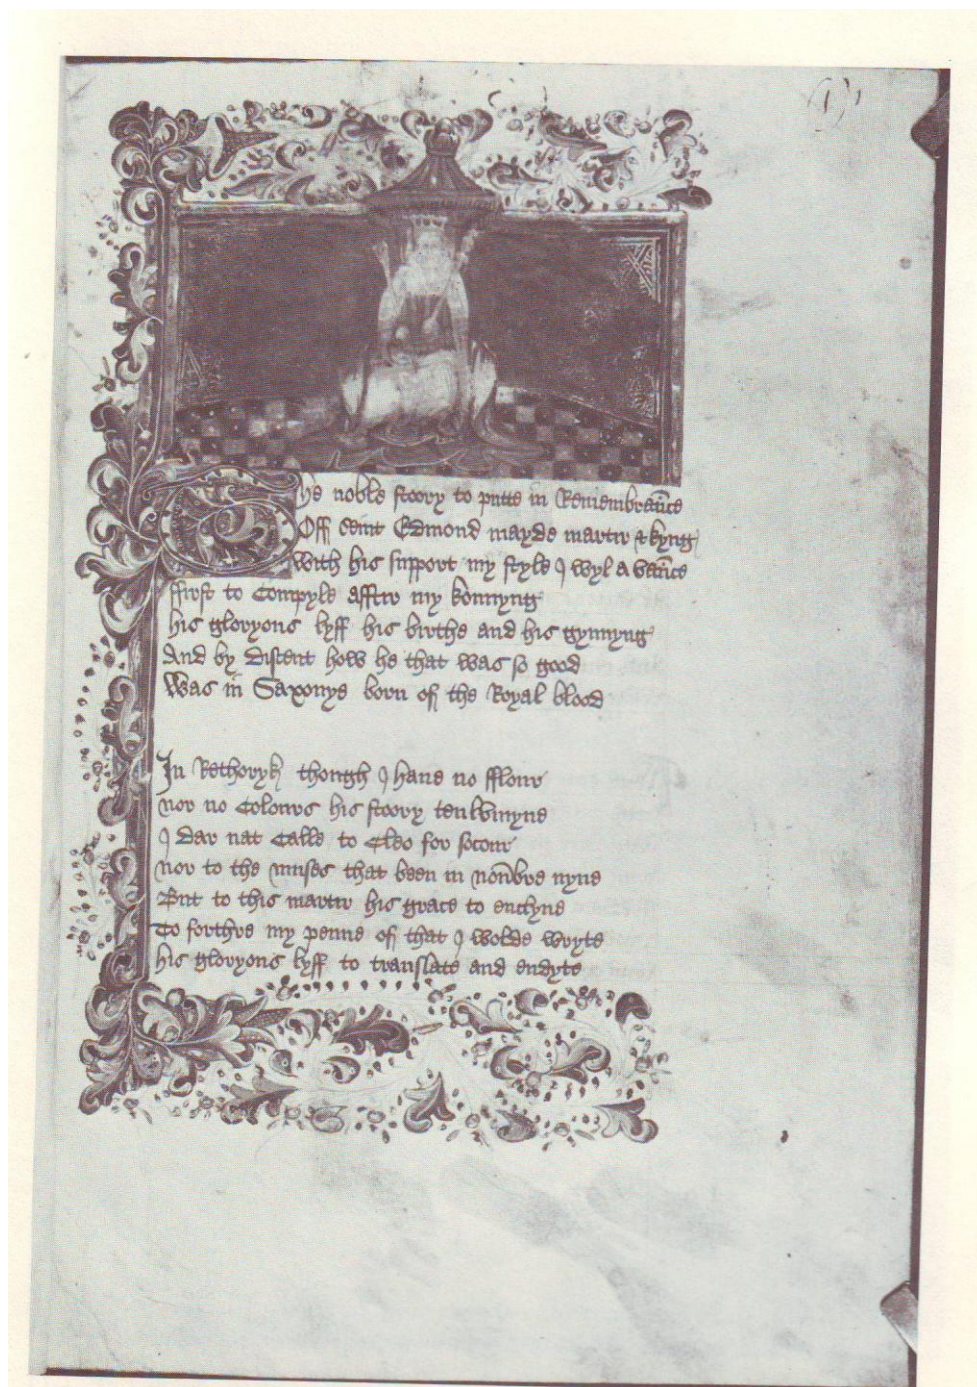 (1) 1
The noble stoory to putte in Remembraūce
Off Seint Edmond mayde martir & kyng
With his support my style I wyl avaūce
ffirst to Compyle afftir my konnyng
his gloryous lyff his birthe and his gynnyng
And by discent how he that was so good
Was in Saxonye born of the Royal blood
In Rethoryk though I haue no fflour
nor no Colours his stoory tenlvmyne
I dar nat Calle to Cleo for socour
nor to the muses that been in nōvbre nyne
But to this martir his grace to enclyne
To forthre my penne of that I wolde wryte
his gloryous lyff to translate and endyte